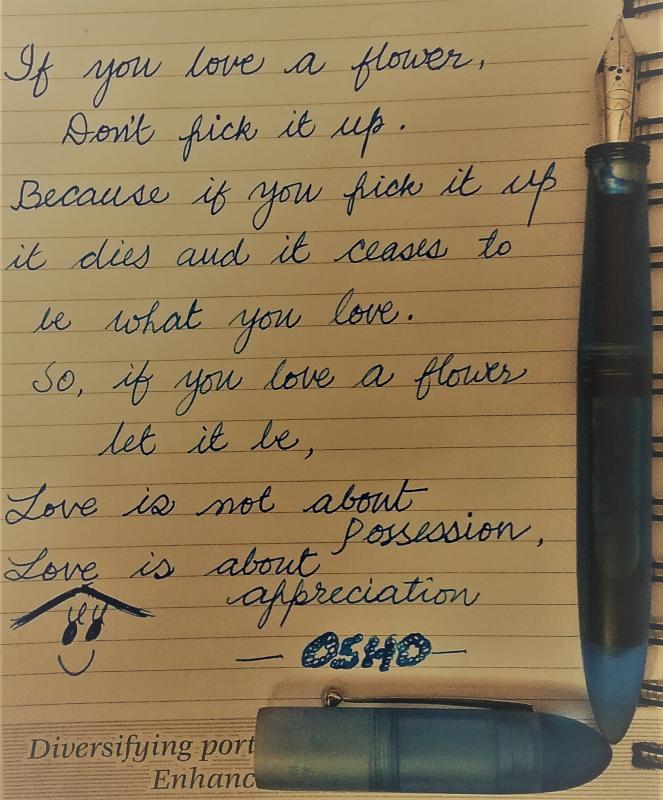 If you love a flower,
Don't pick it up.
Because if you pick it up
it dies and it ceases to
be what you love.
So, if you love a flower
let it be,
Love is not about
Possession,
Love is about
appreciation
— OSHO —
Diversifying port
Enhanc